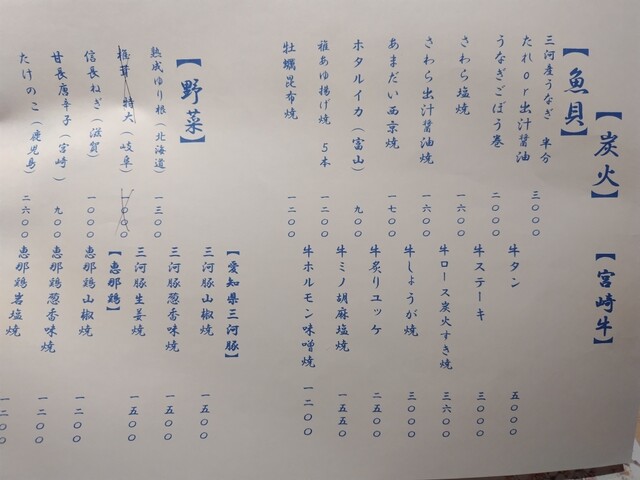 【炭火】
【魚貝】
三河産うなぎ 半分
たれor出汁醤油 三〇〇〇
うなぎごぼう巻 二〇〇〇
さわら塩焼 一六〇〇
さわら出汁醤油焼 一六〇〇
あまだい西京焼 一七〇〇
ホタルイカ(富山) 九〇〇
稚あゆ揚げ焼 5本 一二〇〇
牡蠣昆布焼 一二〇〇
【野菜】
熟成ゆり根(北海道) 一三〇〇
椎茸 特大(岐阜)
信長ねぎ(滋賀) 一〇〇〇
甘長唐辛子(宮崎) 九〇〇
たけのこ(鹿児島) 二六〇〇
【宮崎牛】
牛タン 五〇〇〇
牛ステーキ 三〇〇〇
牛ロース炭火すき焼 三六〇〇
牛しょうが焼 三〇〇〇
牛炙りユッケ 二五〇〇
牛ミノ胡麻塩焼 一五五〇
牛ホルモン味噌焼 一二〇〇
【愛知県三河豚】
三河豚山椒焼 一五〇〇
三河豚葱香味焼 一五〇〇
三河豚生姜焼 一五〇〇
【恵那鶏】
恵那鶏山椒焼 一二〇〇
恵那鶏葱香味焼 一二〇〇
恵那鶏岩塩焼 一二〇〇